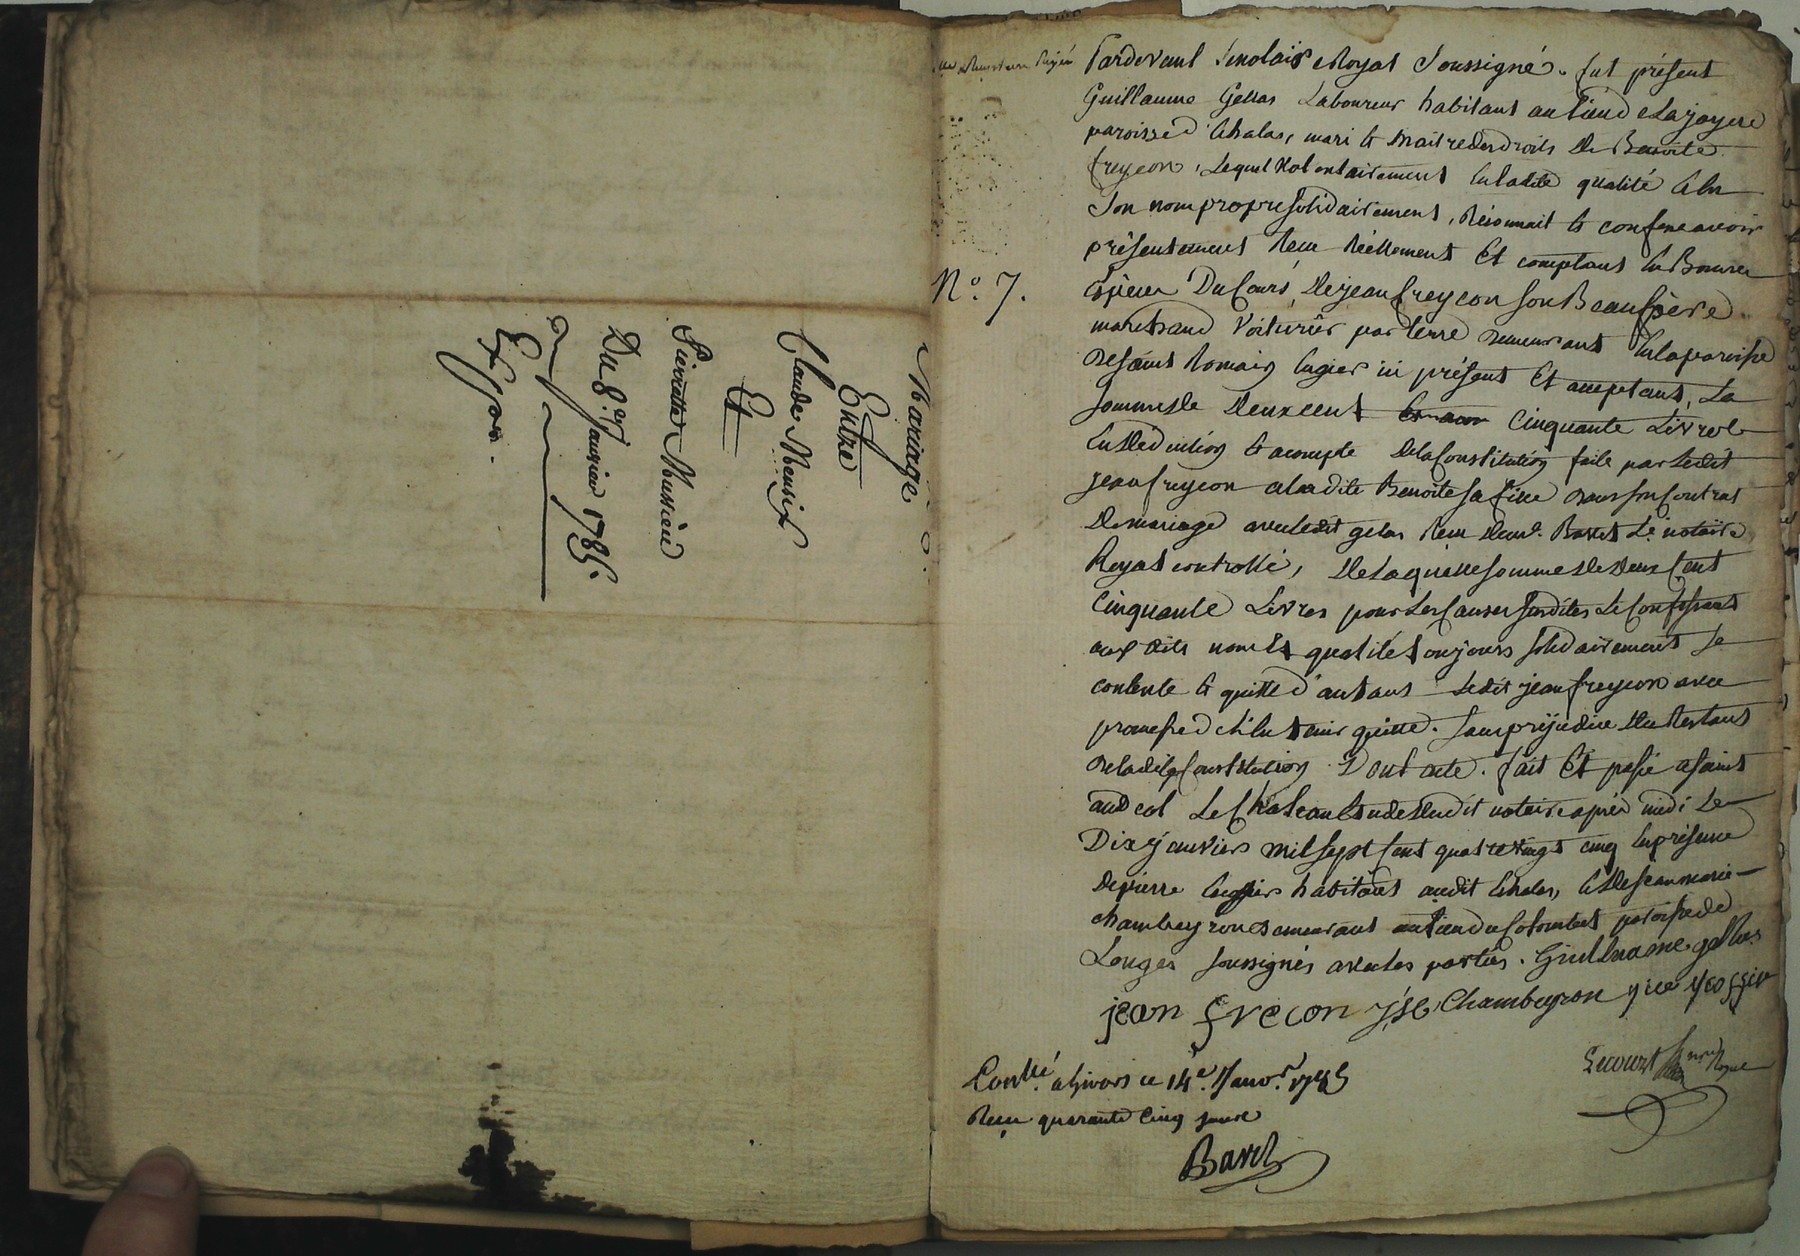 Mariage
Entre
Claude Meusix
Et
Pierrette Mussieu
Du 8.e Janvier 1785.
Expor.
N.o 7.
Pardevant le notaire Royal Soussigné. fut présent
Guillaume Gellas Laboureur habitant au lieu de Lajoyere
paroisse d'Echalas, mari et maitre des droits de Benoite
freycon, Lequel Volontairement en ladite qualité et en
Son nom propre solidairement, Reconnait et confesse avoir
présentement Reçu Réellement Et comptant En Bonnes
Espèces Du Cours, de jean freycon son Beaupère
marchand Voiturier par terre demeurant En la paroisse
de saint Romain en gier ici présent Et acceptant, La
somme de deux cent cinquante Livres
En déduction et acompte de la Constitution faite par ledit
jean freycon a ladite Benoite sa fille dans son Contrat
de mariage avec ledit gelas Reçu Barret Le notaire
Royal controllé, de Laquelle somme de deux Cent
Cinquante Livres pour Les Causes susdites Le Confessant
aux dits noms Et qualités toujours solidairement se
contente et quitte d'autant Ledit jean freycon avec
promesse de l'En tenir quitte. sans préjudice du Restant
de ladite Constitution Dont acte. fait Et passé a saint
andeol Le Chateau Etude dudit notaire après midi Le
Dix janvier mil sept Cent quatre vingt cinq En présence
de pierre habitant audit Echalas, Et de jean marie
chambeyron demeurant au lieu du Colombet paroisse de
Longes soussignés avec les parties. Guillaume gellas
jean frecon Chambeyron
Lecourt
Con.llé a Givors ce 14.e Janv.r 1785
Reçu quarante Cinq sous
Barret